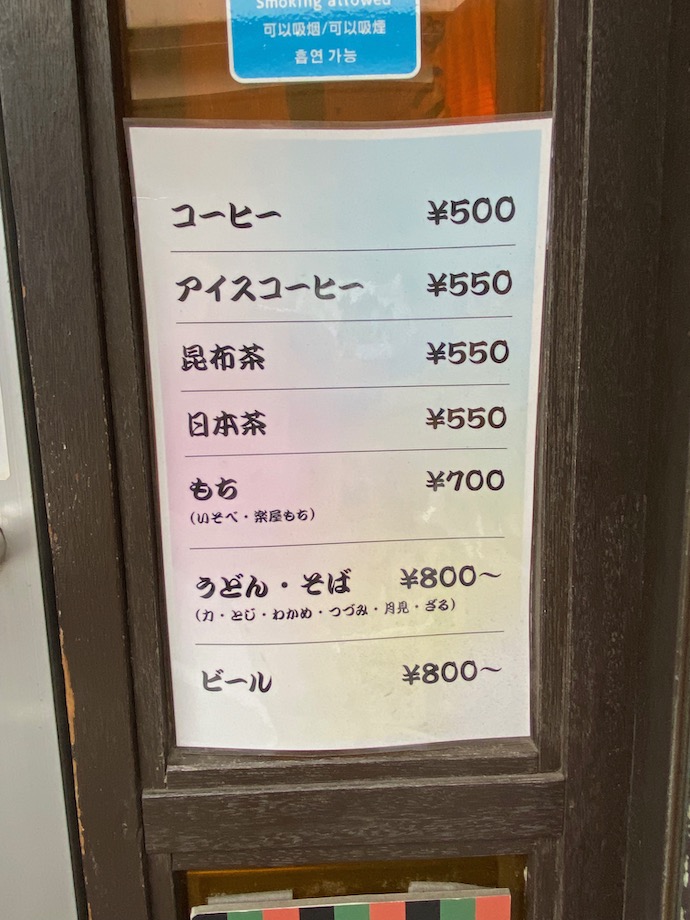 Smoking allowed
可以吸烟/可以吸煙
흡연 가능
コーヒー ¥500
アイスコーヒー ¥550
昆布茶 ¥550
日本茶 ¥550
もち ¥700
(いそべ・楽屋もち)
うどん・そば ¥800〜
(力・とじ・わかめ・つづみ・月見・ざる)
ビール ¥800〜